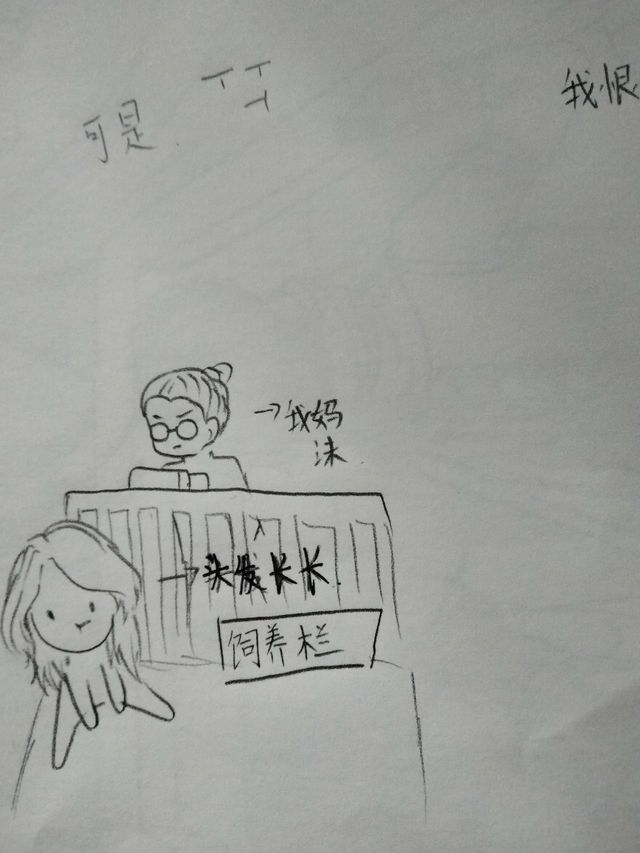 我恨
可是
→我妈
沫
→头发长长
饲养栏